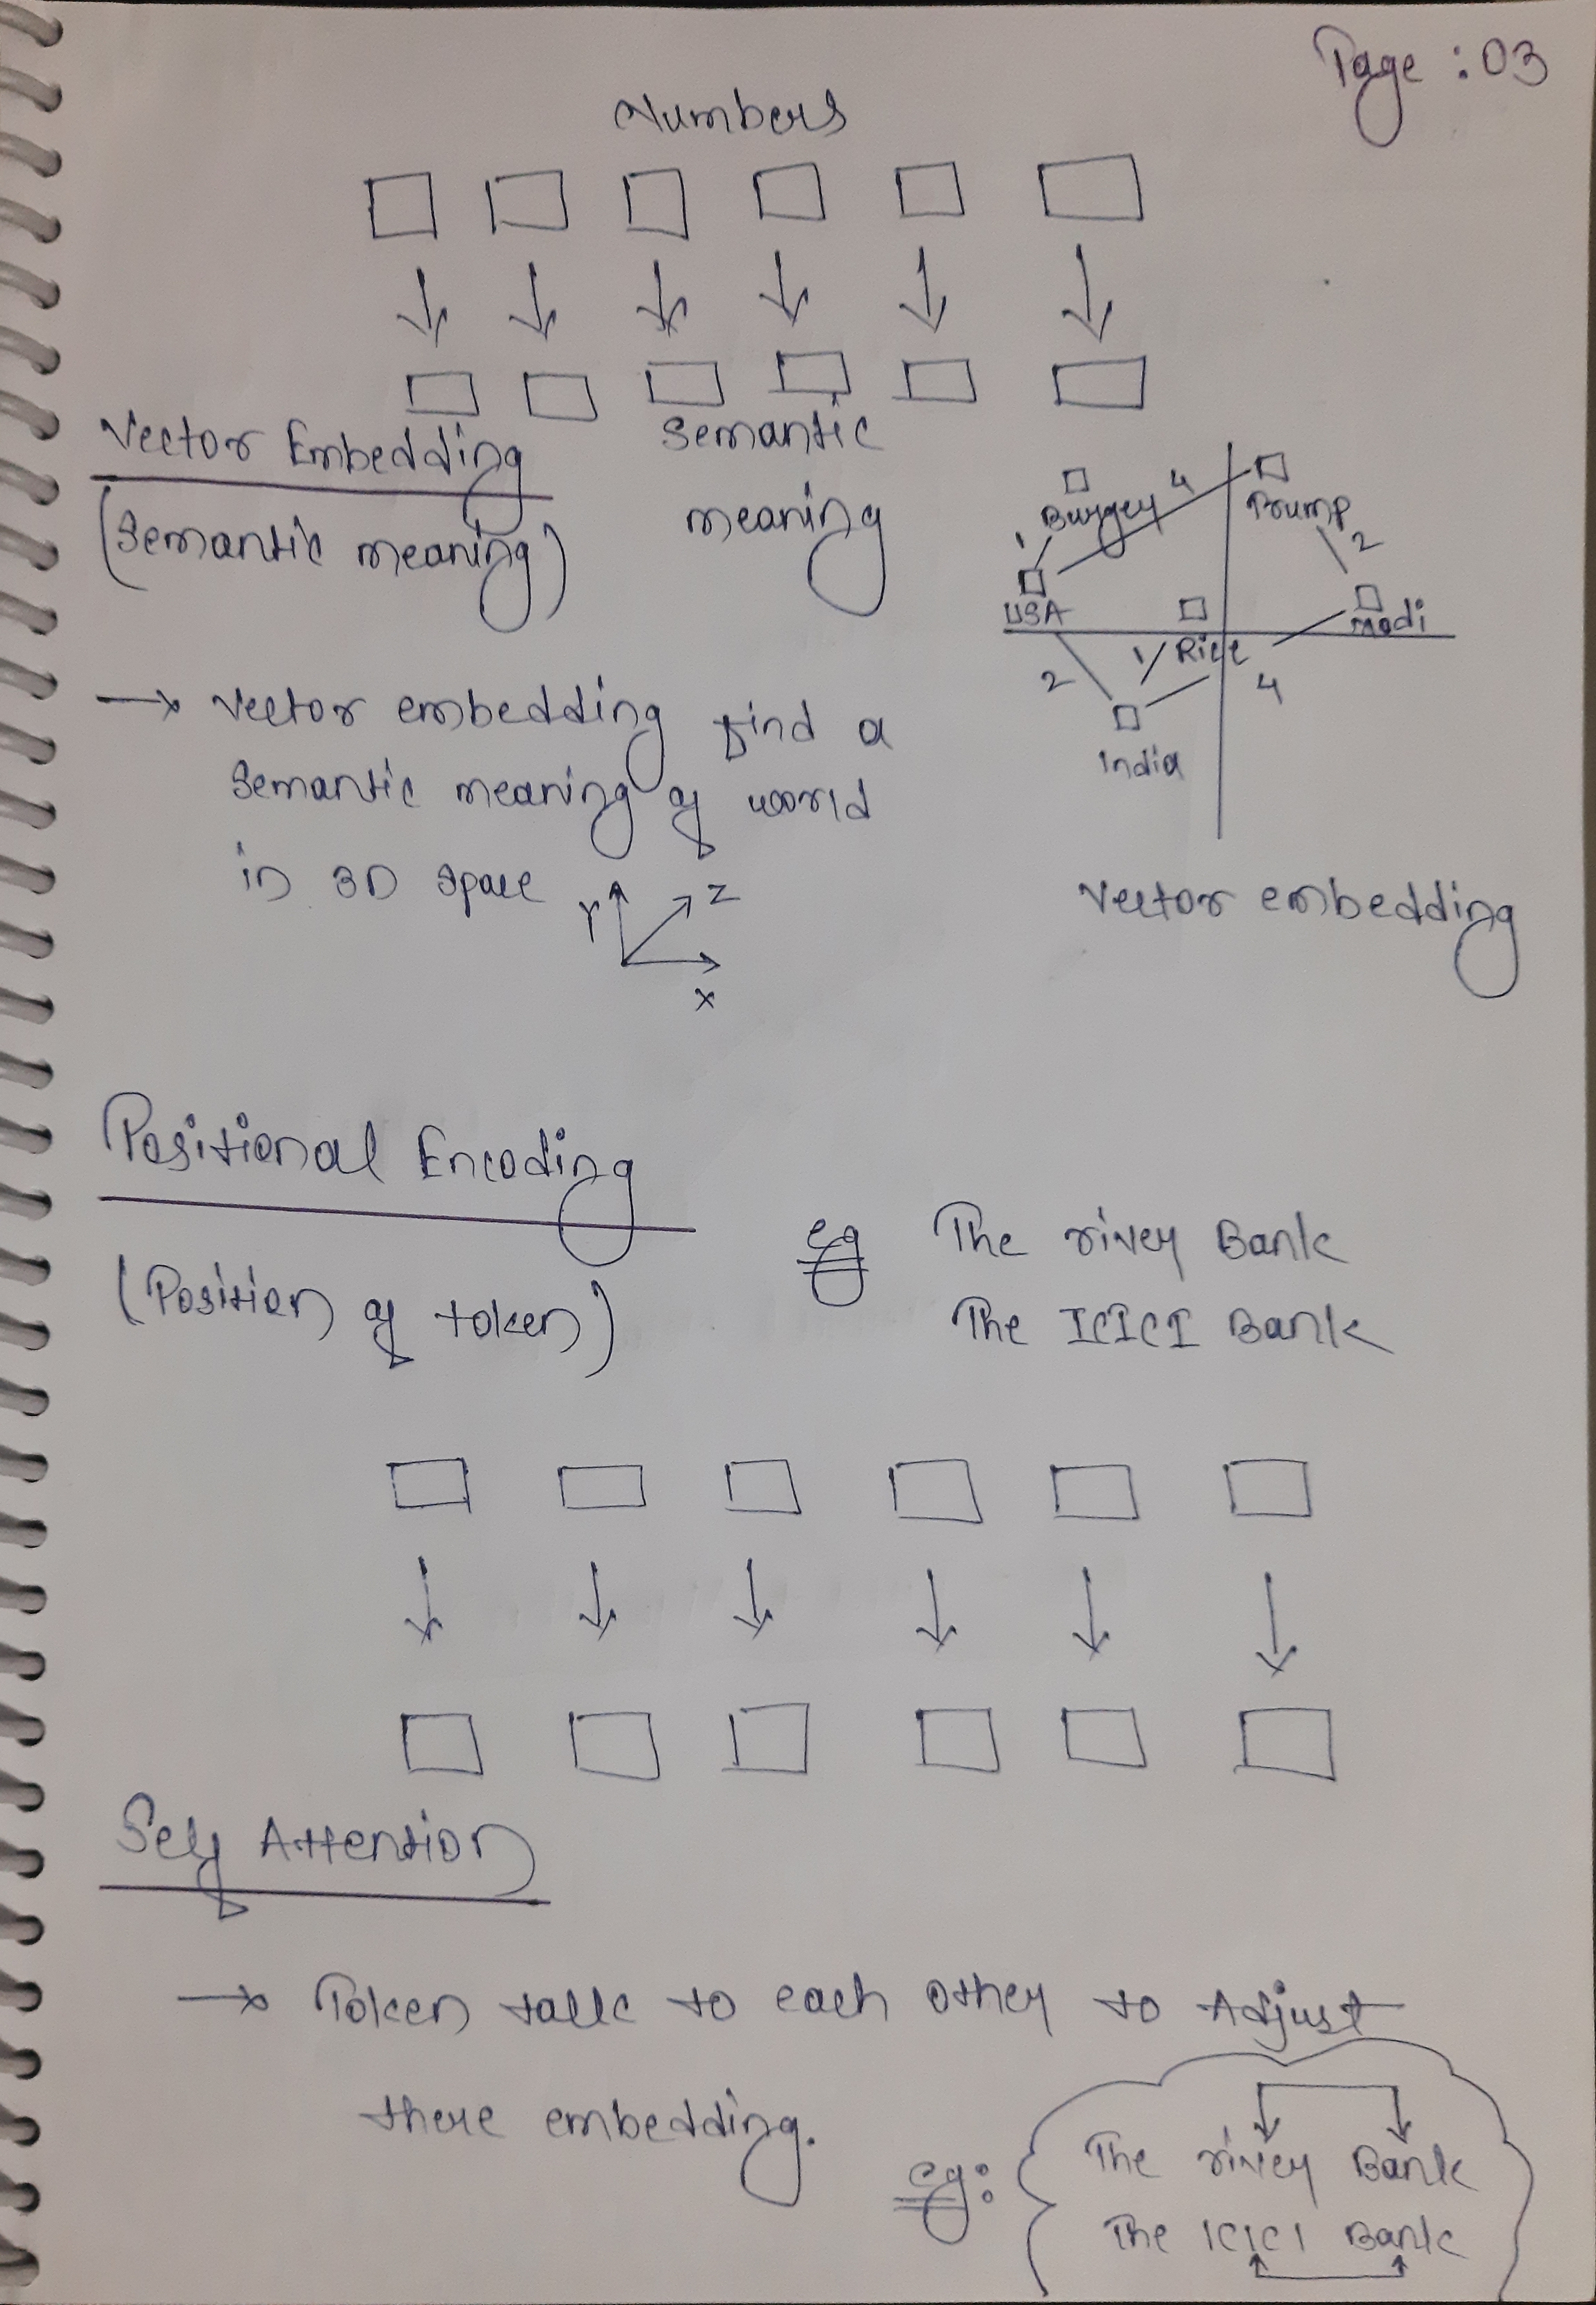 Page : 03
Numbers
Vector Embedding
(semantic meaning)
semantic
meaning
Burger
4
Trump
1
2
USA
Modi
Rice
1
2
4
India
→ vector embedding find a
semantic meaning of world
in 3D space
Y
Z
X
vector embedding
Positional Encoding
(Position of token)
eg The river Bank
The ICICI Bank
Self Attention
→ Token talk to each other to Adjust
there embedding.
eg:
The river Bank
The ICICI Bank